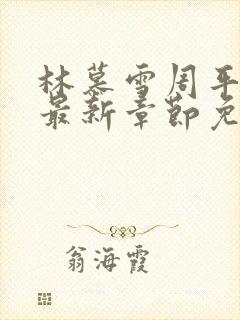 林慕雪周平
最新章节免
翁海霞